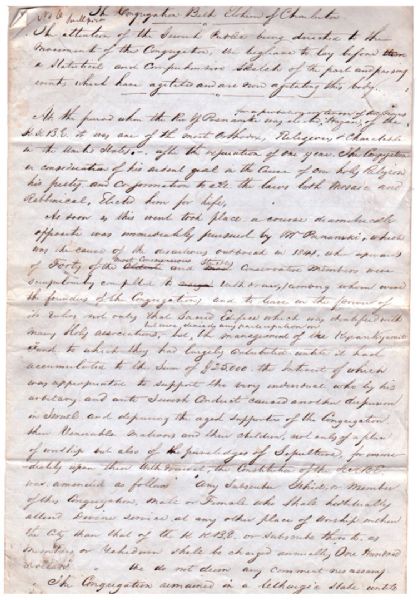 No 6
The Congregation Beth Elohim of Charleston
The attention of the Jewish Public being directed to the
movement of the Congregation, We beg leave to lay before them
a Statistical and Comprehensive Sketch of the past and passing
events which have agitated and are now agitating this body.
At the period when the Rev Mr Poznanski was elected Hazan, of the
K K B E. it was one of the most Orthodox, Religious & Charitable
in the United States, after the expiration of one year. The Congregation
in consideration of his ardent zeal in the Cause of our holy Religion
his piety and Conformation to all the laws both Mosaic and
Rabbinical, Elected him for life,
As soon as this event took place a course diametrically
opposite was immediately pursued by Mr Poznanski, which
was the cause of the secession outspread in 1840, when upwards
of Forty of the most Conscientious and Conservative Members were
compulsorily compelled to withdraw, (among whom were
the founders of the Congregation, and to leave in the possession of
not only that Sacred Edifice which was hallowed with
many Holy associations,
but, the management of the
Fund to which they had largely contributed until it had
accumulated to the Sum of $25000. the Interest of which
was appropriated to support the very individual who by his
arbitrary and anti Jewish Conduct caused another dispersion
in Israel and depriving the aged supporters of the Congregation
their Venerable Matrons and their children, not only of a place
of worship but also of the privileges of Sepulture, for imme-
diately upon their withdrawal, the Constitution of the K K B E
was amended as follows "Any Subscriber or Member
of this Congregation, Male or Female who shall habitually
attend Divine service at any other place of worship within
the City than that of the K K B E. or Subscribe thereto, as
members or Yahidim shall be charged annually One Hundred
Dollars" We do not deem any comment necessary.
The Congregation remained in a lethargic state until